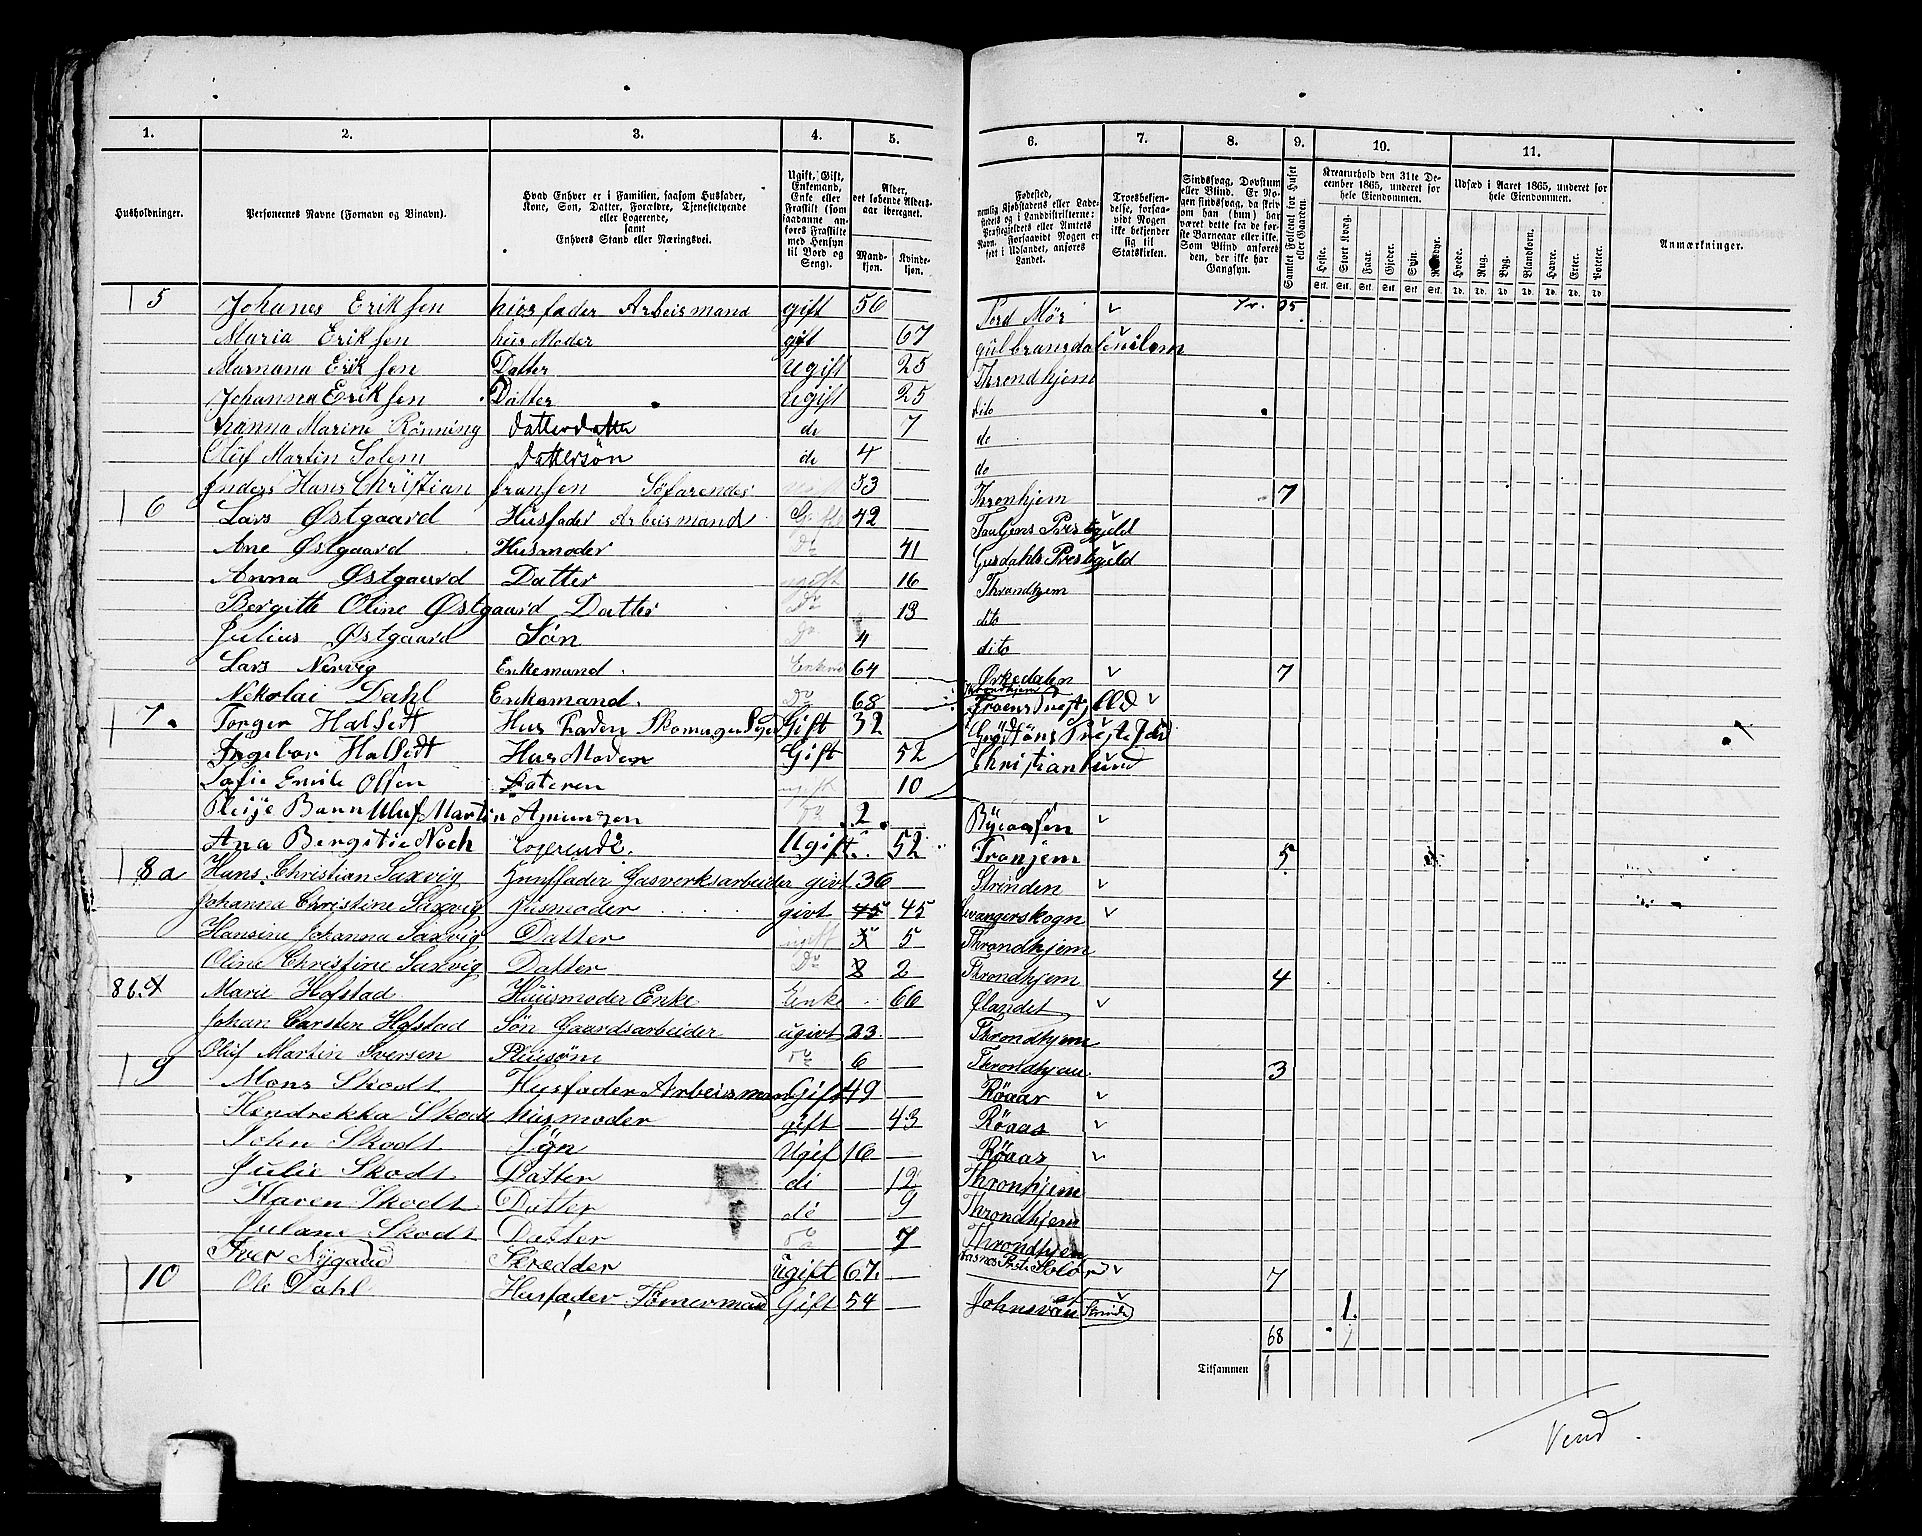 1. 2. 3. 4. 5. 6. 7. 8. 9. 10. 11.
Husholdninger.
Personernes Navne (Fornavn og Tilnavn).
Hvad Enhver er i Familien, saasom Husfader, Kone, Søn, Datter, Forældre, Tjenestetyende eller Logerende, samt Enhvers Stand eller Næringsvei.
Ugift, Gift, Enkemand, Enke eller Fraskilt (som saadanne anføres Fraskilte med Hensyn til Bord og Seng).
Alder, det løbende Aldersaar iberegnet.
Mandkjøn. Kvindekjøn.
Fødested, nemlig Kjøbstadens eller Ladestedets og i Landdistrikterne: Præstegjeldets eller Amtets Navn. Forsaavidt Nogen er født i Udlandet, anføres Landet.
Troesbekjendelse, forsaavidt Nogen ikke bekjender sig til Statskirken.
Sindssvag, Døvstum eller Blind. Er Nogen sindssvag, da skrives om han (hun) har været dette fra de første Barneaar eller ikke. Som Blind anføres den, der ikke har Gangsyn.
Samlet Folketal for Huset eller Gaarden.
Kreaturhold den 31te December 1865, underet for hele Eiendommen.
Udsæd i Aaret 1865, underet for hele Eiendommen.
Anmærkninger.
Heste. Stort Kvæg. Faar. Gjeder. Sviin. Rensdyr. Hvede. Rug. Byg. Blandkorn. Havre. Erter. Poteter.
Stk. Stk. Stk. Stk. Stk. Stk. Td. Td. Td. Td. Td. Td. Td.
5 Johanes Eriksen husfader Arbeismand gift 56 Nord Mør
Maria Eriksen hus Moder gift 67
Marnana Eriksen Datter Ugift 25 Throndhjem
Johanna Eriksen Datter Ugift 25 dito
Hanna Marine Rønning Datterdatte do 7 do
Oluf Martin Solem Dattersøn do 4 do
Anders Hans Christian fransen Søfarendes 53 Thronhjem 7
6 Lars Østgaard Husfader Arbeismand Gift 42 Prestgjeld
Ane Østgaard Husmoder Do 41 Prestgjeld
Anna Østgaard Datter ugift 16 Throndhjem
Bergitte Oline Østgaard Datter Do 13 dito
Julius Østgaard Søn Do 4 dito
Lars Nervig Enkemand. 64 Ørkedalen 7
Nekolai Dahl Enkemand. Do 68 Throndhjem
7. Torger Halsedt Hus Faden Gift 32
Ingebor Halsedt Hus Moden Gift 52 Christiansund
Sofie Emile Olsen Dateren ugift 10
Pleije Barn Uluf Martin Amunsen Do 2 Byeaasen
Ana Bergitie Noch Logerende. Ugift 52 Tronjem 5
8a Hans Christian Saxvig Huusfader Gasverksarbeider givt 36 Strinden
Johanna Christine Saxvig Husmoder givt 45 45 Levangerskogn
Hansine Johanna Saxvig Datter ugift 5 5 Throndhjem
Oline Christine Saxvig Datter Do 2 2 Throndhjem 4
8b. Marie Hofstad Huusmoder Enke Enke 66 Ølandet
Johan Carsten Hofstad Søn Gaardsarbeider ugivt 23. Throndhjem
Oluf Martin Iversen Pleiesøn Do 6 Throndhjem 3
9 Mons Skodt Husfader Arbeismand Gift 49 Röaas
Hendrekka Skodt Husmoder gift 43 Röaas
John Skodt Søn Ugif 16 Röaas
Julie Skodt Datter di 12 Thronhjem
Karen Skodt Datter do 9 Throndhjem
Julane Skodt Datter Do 7 Throndhjem
Iver Nygaard Skredder Ugift 67. Solør 7
10 Ole Dahl Husfader Tømermand Gift 54 1.
68 1
Tilsammen
Vend